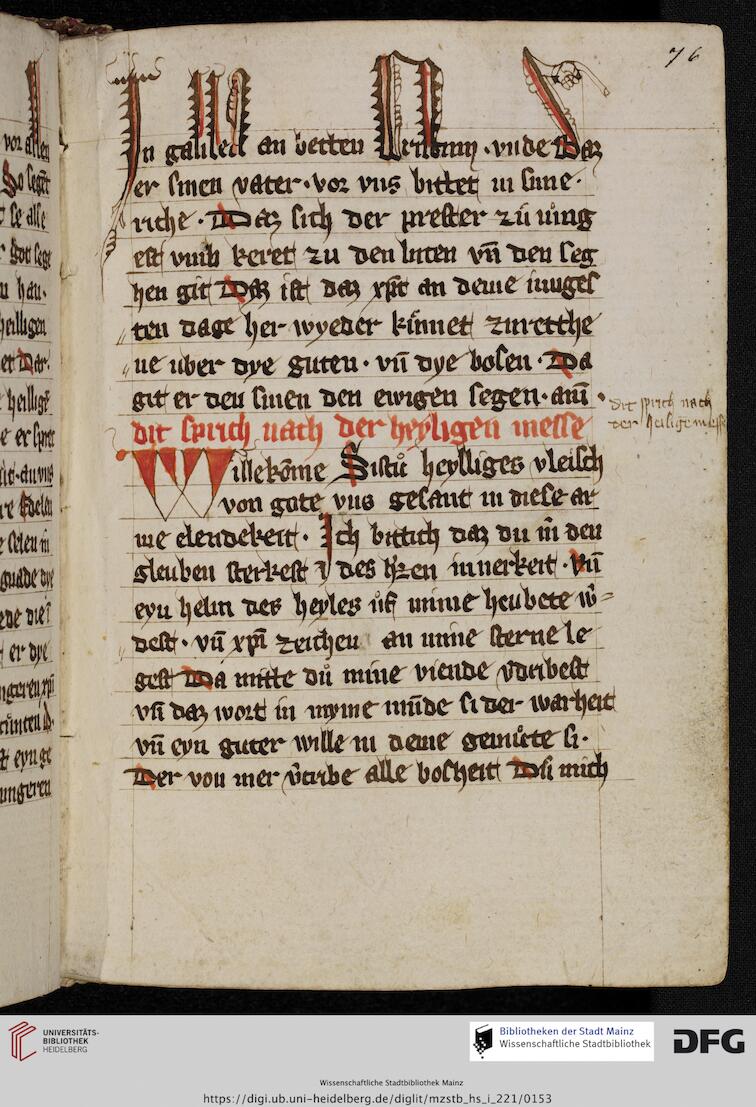 76
In galileä an betten vnde Daz
er sinen vater · vor vns bittet in sine ·
riche · Daz sich der prester zů
est vmb keret zu den luten vn̄ den seg
hen git Daz ist daz xp̄c an deme iunges
ten dage her wyeder kūmet zuretthe
ne uber dye guten · vn̄ dye bosen · Da
git er den sinen den ewigen segen · am̄
dit sprich nach der heyligen messe
dit sprich nach
der heiligē messe
Willekōme heylliges vleisch
von gote vns gesant in diese ar
me elendekeit · Ich bittich daz du m̄ den
glauben sterkest des h̄zen innerkeit · vn̄
eyn helm des heyles ůf mime heubete w̄=
dest · vn̄ xp̄i zeichen an mine sterne le
gest Da mitte dů mine viende v̄dribest
vn̄ daz wort in myme mūde si der warheit
vn̄ eyn guter wille in deme gemůte si ·
Der von mer v̄tribe alle bosheit Dsi mich
vor allen
So segēt
se alle
heilligen
er dye
eyn ge
ungeren
UNIVERSITÄTS-
BIBLIOTHEK
HEIDELBERG
Bibliotheken der Stadt Mainz
Wissenschaftliche Stadtbibliothek
DFG
Wissenschaftliche Stadtbibliothek Mainz
https://digi.ub.uni-heidelberg.de/diglit/mzstb_hs_i_221/0153